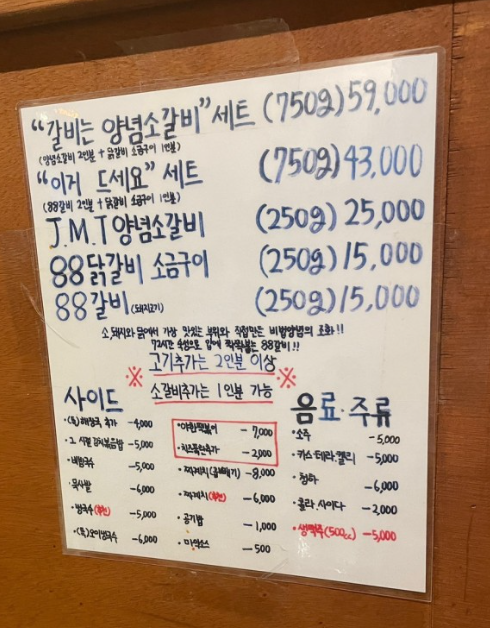 “갈비는 양념소갈비” 세트 (750g) 59,000
(양념소갈비 2인분 + 닭갈비 소금구이 1인분)
“이거 드세요” 세트 (750g) 43,000
(88갈비 2인분 + 닭갈비 소금구이 1인분)
J.M.T 양념소갈비 (250g) 25,000
88닭갈비 소금구이 (250g) 15,000
88갈비 (돼지고기) (250g) 15,000
소,돼지와 닭에서 가장 맛있는 부위와 직접만든 비법양념의 조화!!
72시간 숙성으로 입에 착착붙는 88갈비!!
※ 고기추가는 2인분 이상 ※
소갈비추가는 1인분 가능
사이드
추가 -4,000
김치볶음밥 -5,000
비빔국수 -5,000
묵사발 -6,000
-5,000
-6,000
떡볶이 -7,000
-2,000
-8,000
-6,000
·공기밥 -1,000
-500
음료·주류
·소주 -5,000
·카스·테라·켈리 -5,000
·청하 -6,000
·콜라, 사이다 -2,000
·생맥주(500cc) -5,000